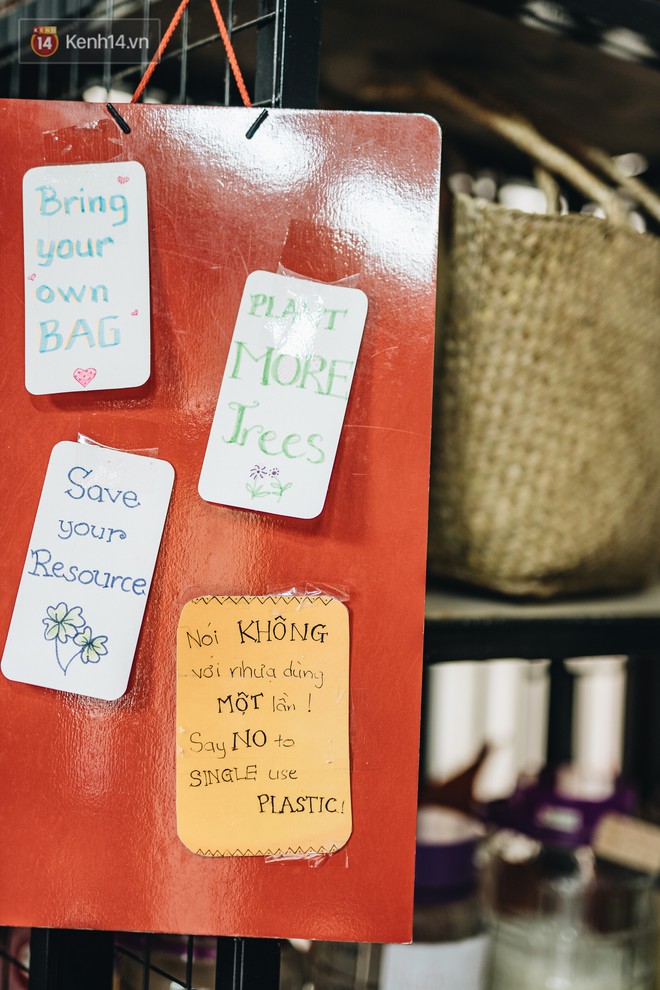 KENH 14
Kenh14.vn
Bring
your
own
BAG
PLANT
MORE
Trees
Save
your
Resource
Nói KHÔNG
với nhựa dùng
MỘT lần !
Say NO to
SINGLE use
PLASTIC!